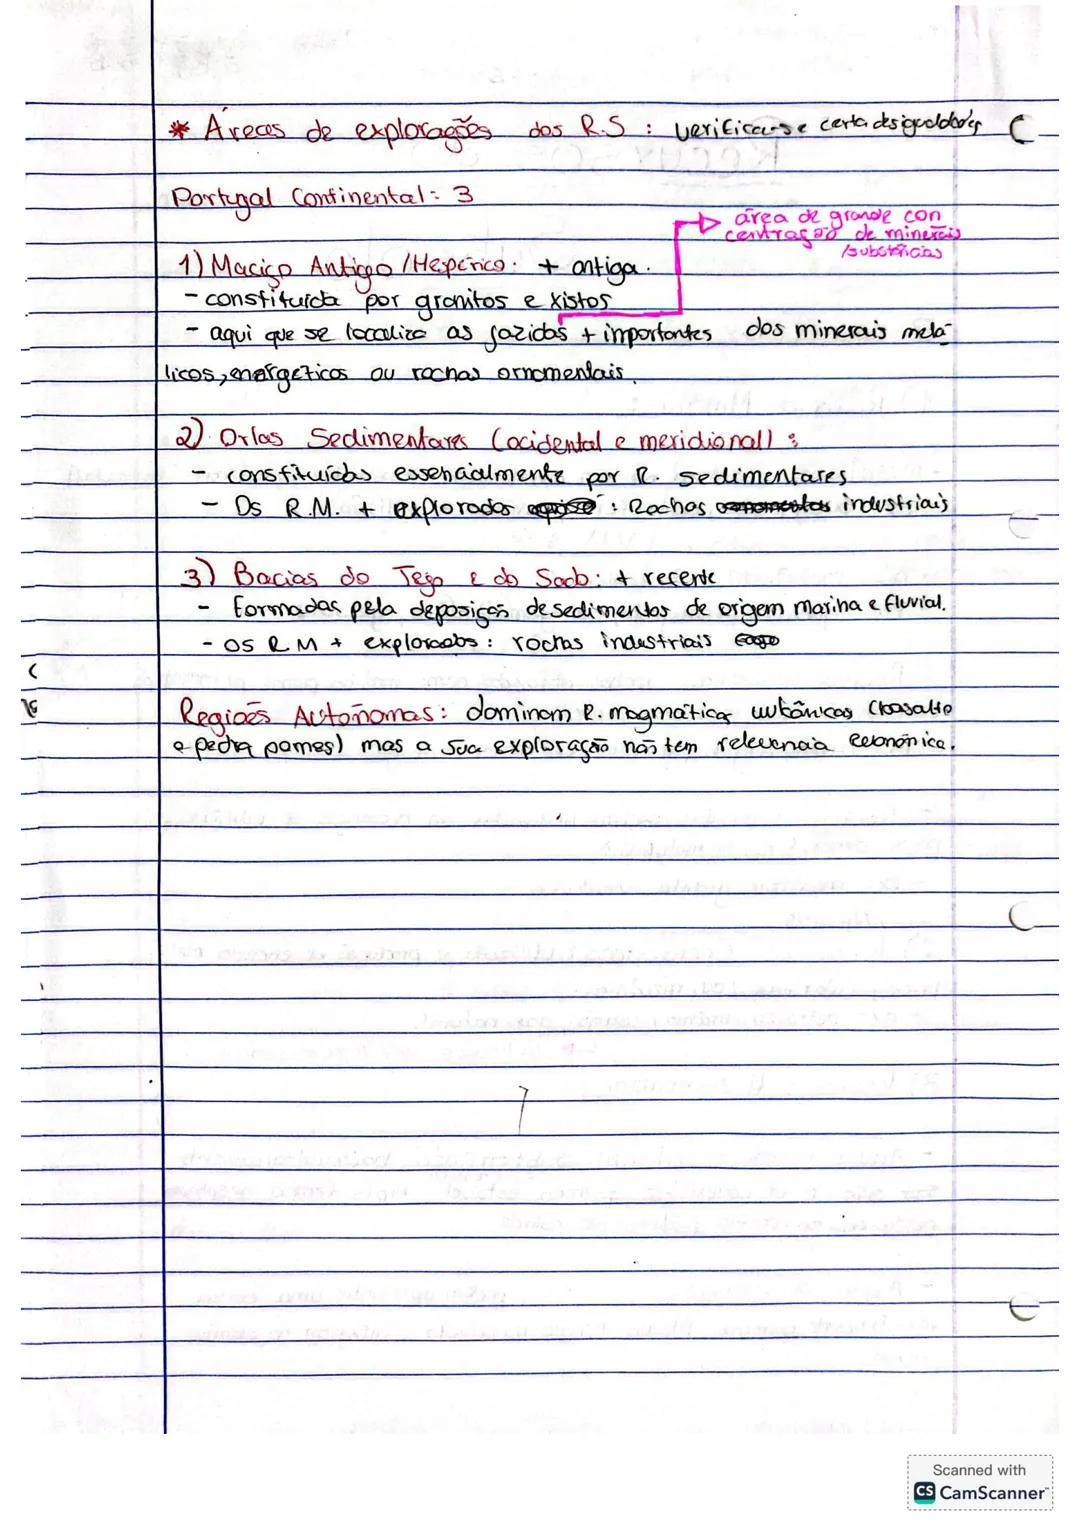 * Áreas de explorações dos R.S : verifica-se certa desigualdades
Portugal Continental: 3
área de grande con
centração de minerais
/substâncias
1) Maciço Antigo /Hespérico: + antiga.
- constituída por granitos e xistos
- aqui que se localiza as jazidas + importantes dos minerais metá-
licos, energéticos ou rochas ornamentais.
2) Orlas Sedimentares (ocidental e meridional) :
- constituídas essencialmente por R. sedimentares
- Os R.M. + explorados : Rochas industriais
3) Bacias do Tejo e do Sado: + recente
- Formadas pela deposição de sedimentos de origem marinha e fluvial.
- OS R M + explorados : rochas industriais
Regiões Autónomas: dominam R. magmáticas vulcânicas (basalto
e pedra pomes) mas a sua exploração não tem relevencia económica.
Scanned with
CS CamScanner